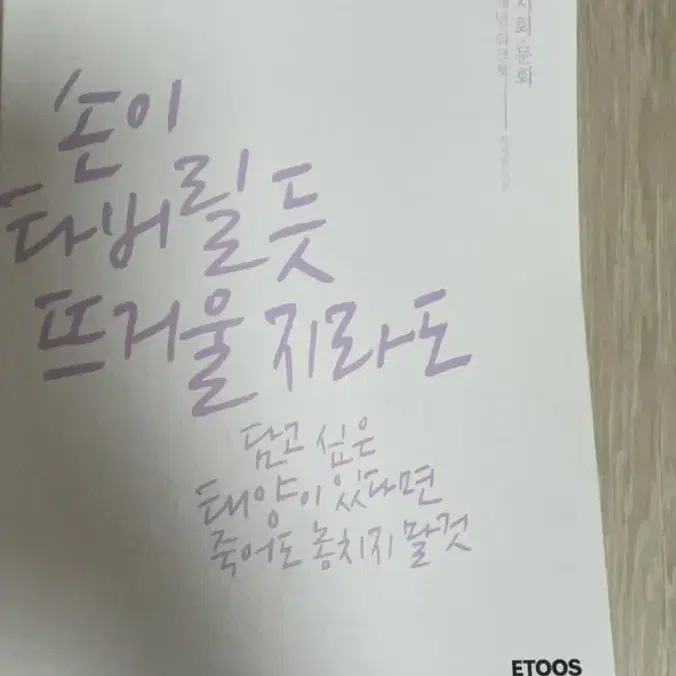 손이
타버릴 듯
뜨거울지라도
담고 싶은
태양이 있다면
죽어도 놓치지 말 것
사회·문화
ETOOS